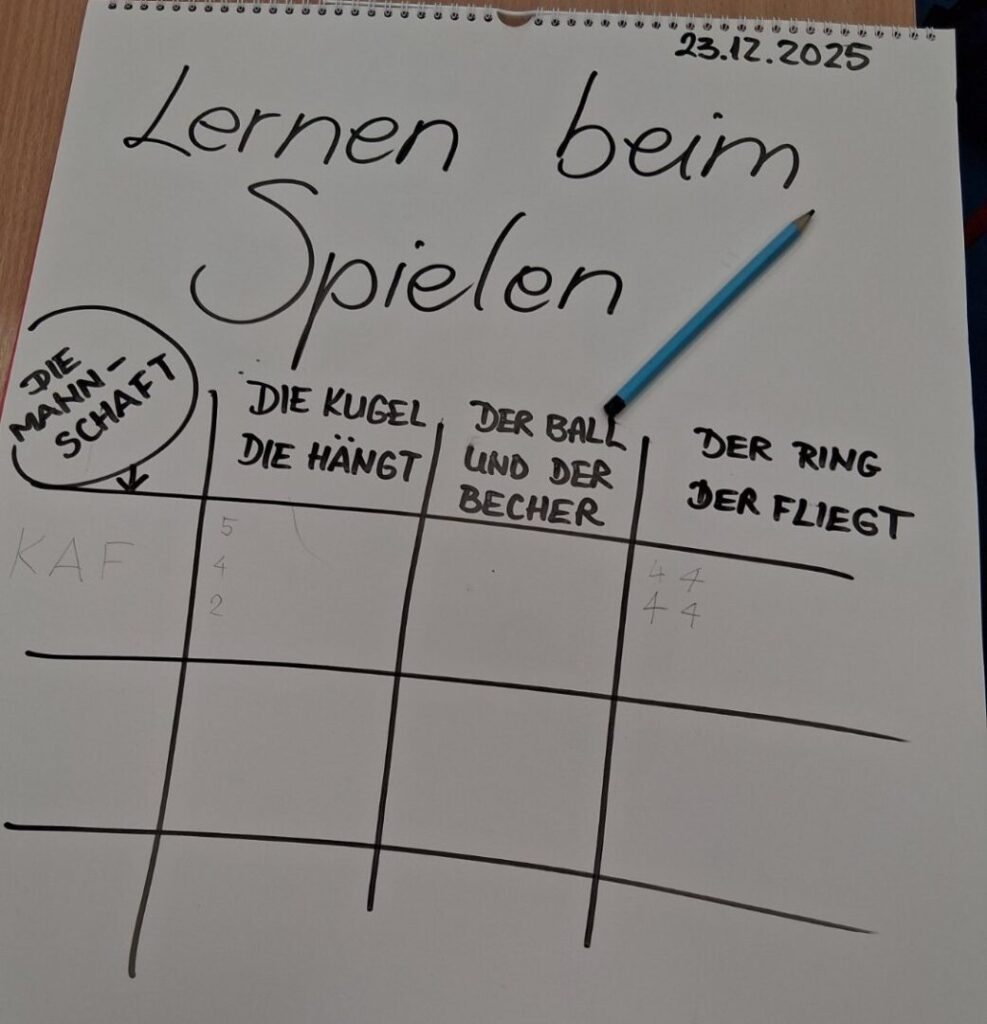 23.12.2025
Lernen beim
Spielen
DIE
MANN-
SCHAFT
DIE KUGEL
DIE HÄNGT
DER BALL
UND DER
BECHER
DER RING
DER FLIEGT
KAF
5
4
2
4 4
4 4